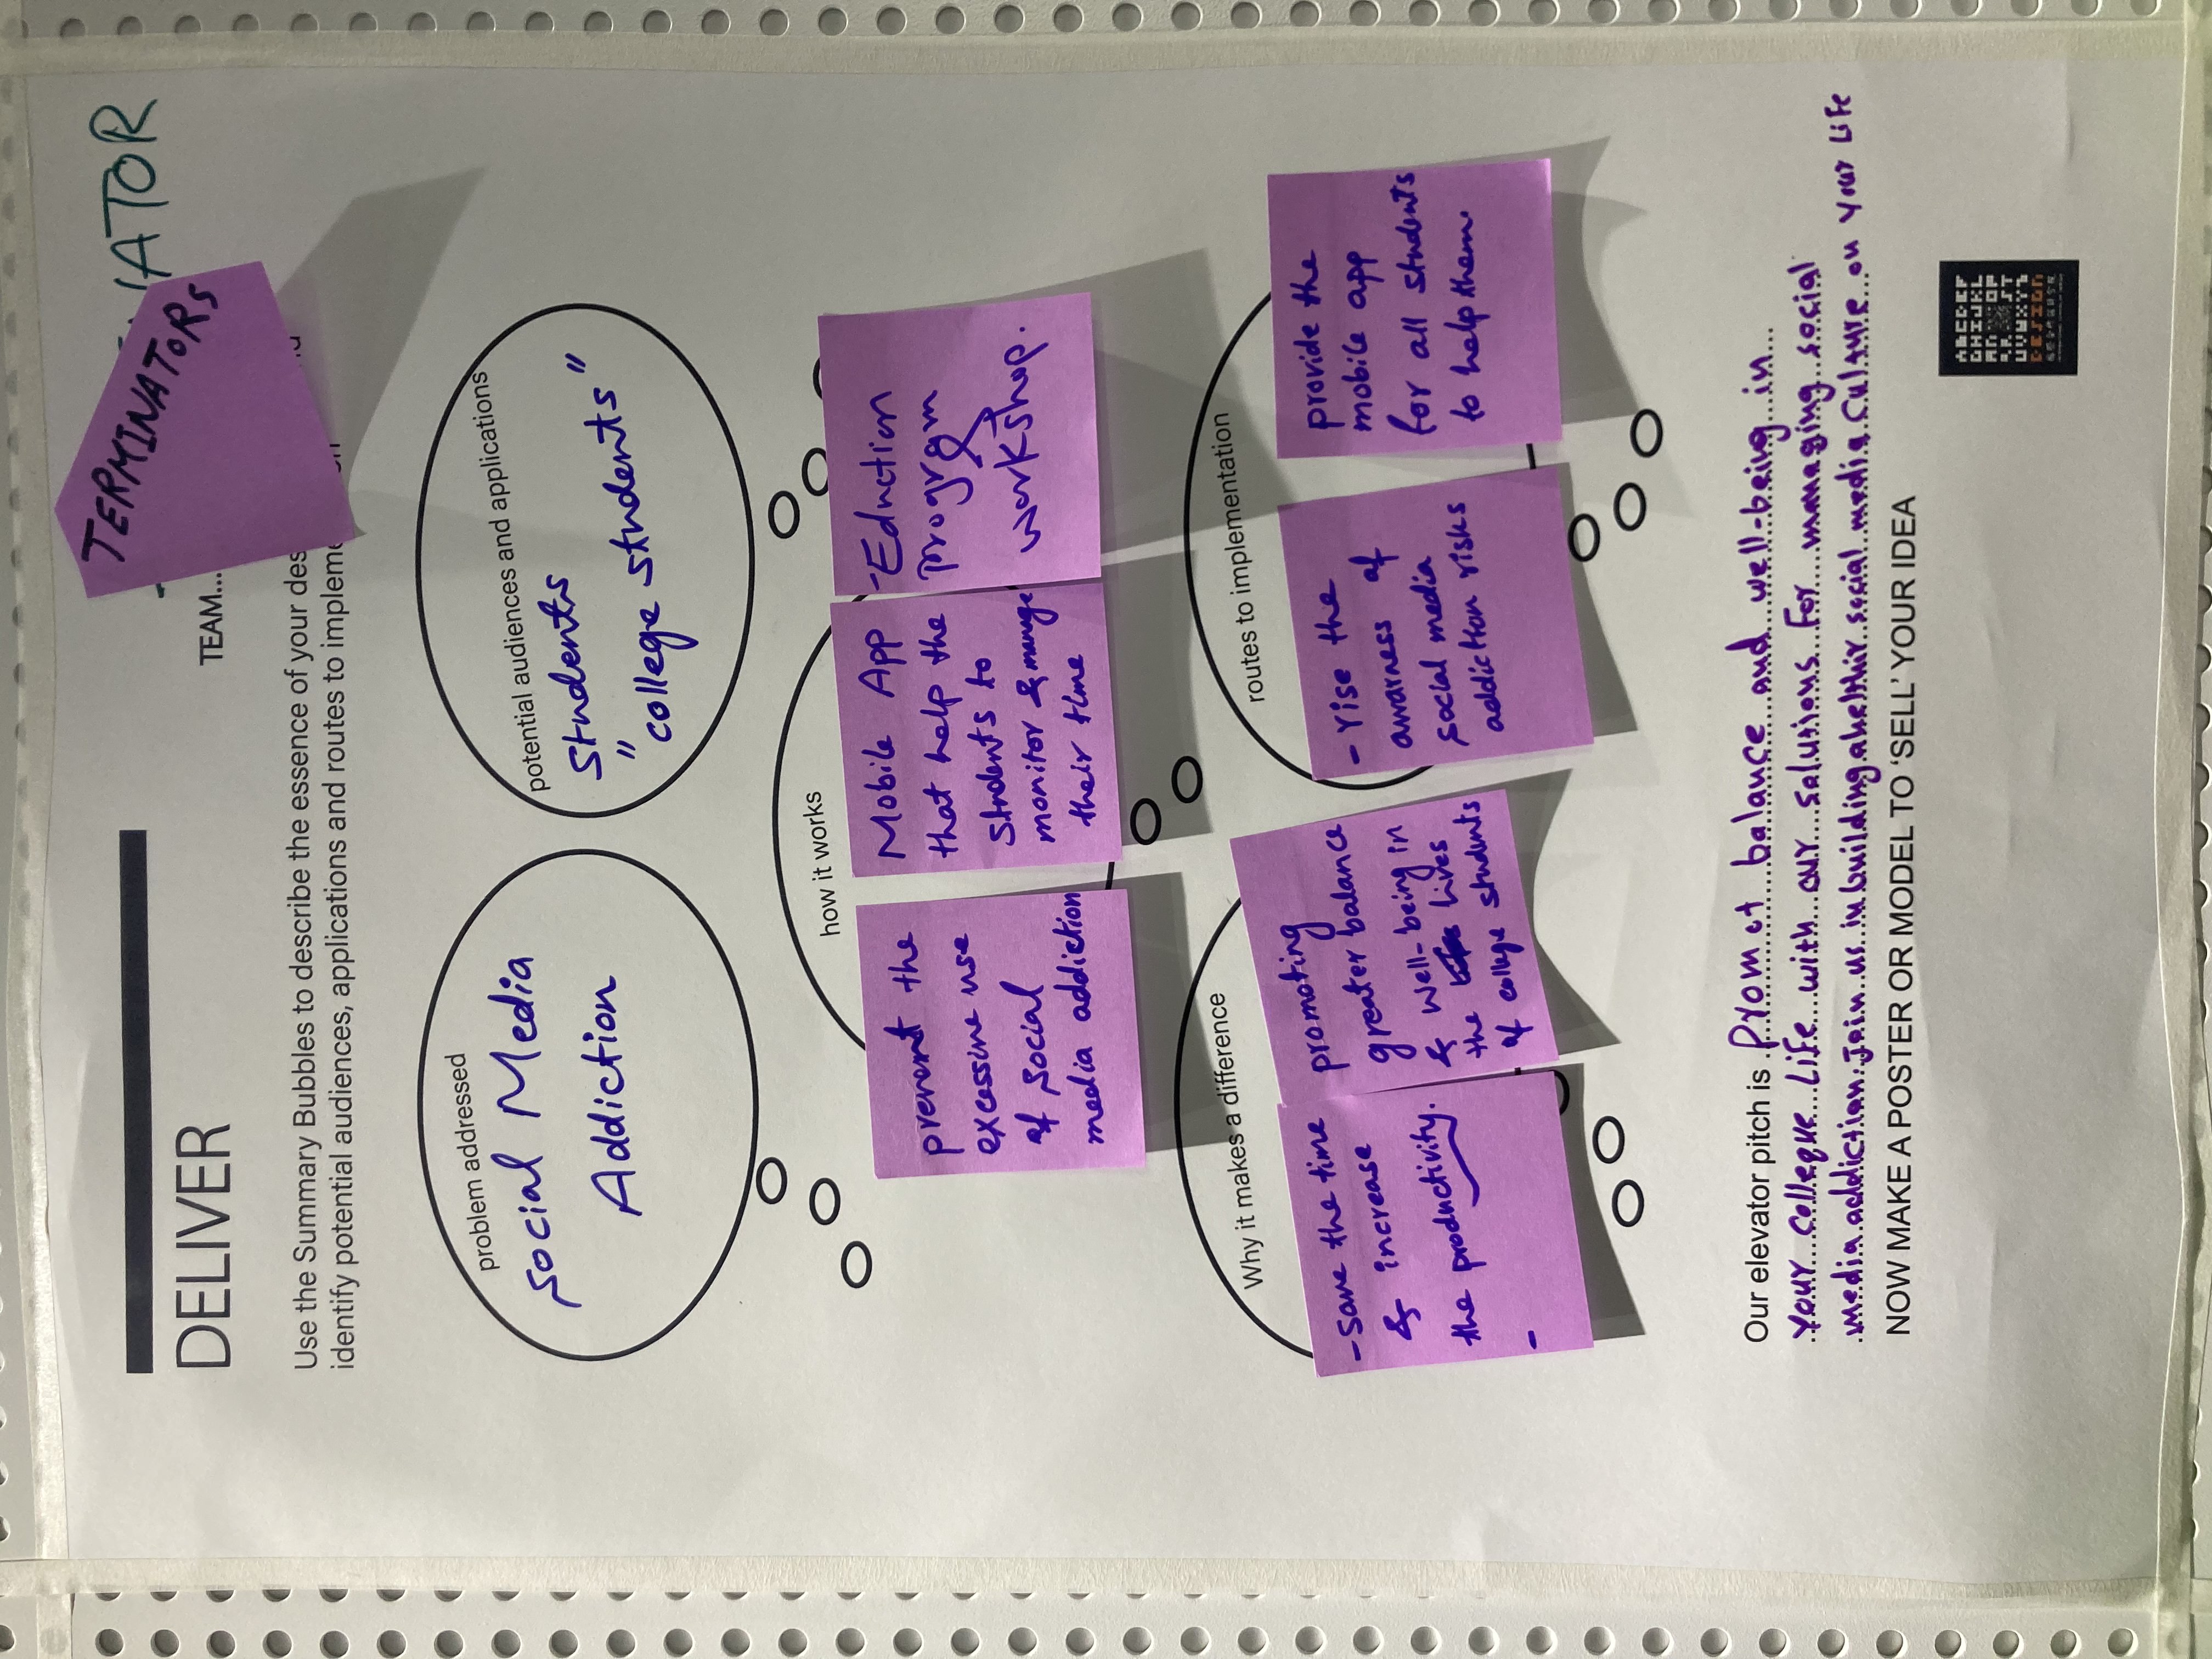 TERMINATORS
NATOR
DELIVER
TEAM...
Use the Summary Bubbles to describe the essence of your des
identify potential audiences, applications and routes to implem
problem addressed
Social Media
Addiction
potential audiences and applications
Students
"college students"
how it works
prevent the
excessive use
of social
media addiction
Mobile App
that help the
students to
monitor & manage
their time
- Eduction
program
&
workshop.
Why it makes a difference
- Save the time
& increase
the productivity.
-
promoting
greater balance
& well-being in
the lives
of college students
routes to implementation
- rise the
awarness of
social media
addiction risks
provide the
mobile app
for all students
to help them.
Our elevator pitch is Promot balance and well-being in
your colleque Life with our solutions For managing social
media addiction. Join us in building a helthir social media Culture on Your Life
NOW MAKE A POSTER OR MODEL TO ‘SELL’ YOUR IDEA
ABCDEF
GHIJKL
MN OP
QR ST
UVWXYZ
DESIGN